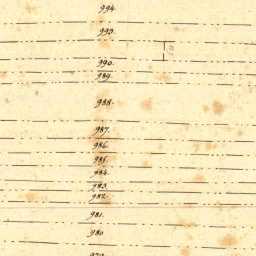 994
993.
990.
989.
988.
987.
986.
985.
984.
983.
982.
981.
980